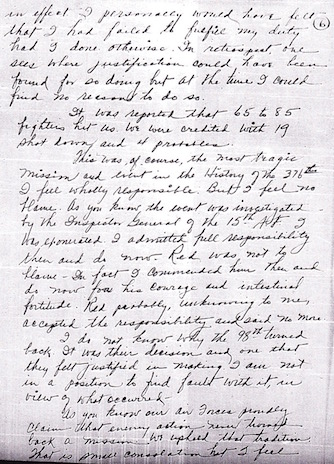 in effect I personally would have felt
6
that I had failed to fulfill my duty
had I done otherwise. In retrospect one
sees where justification could have been
found for so doing but at the time I could
find no reason to do so.
It was reported that 65 to 85
fighters hit us. We were credited with 19
shot down and 11 probables.
This was, of course, the most tragic
mission and event in the History of the 376th
I feel wholly responsible. But I feel no
blame. As you know the event was investigated
by the Inspector General of the 15th A.F. I
was exonerated. I admitted full responsibility
then and do now. Red was not to
blame - In fact I commended him then and
do now for his courage and intestinal
fortitude. Red probably, unknowing to me,
accepted the responsibility and said no more.
I do not know why the 98th turned
back. It was their decision and one that
they felt justified in making. I am not
in a position to find fault with it in
view of what occurred -
As you know our Air Forces proudly
claim - that enemy action never turned
back a mission - We upheld that tradition.
That is small consolation but I feel